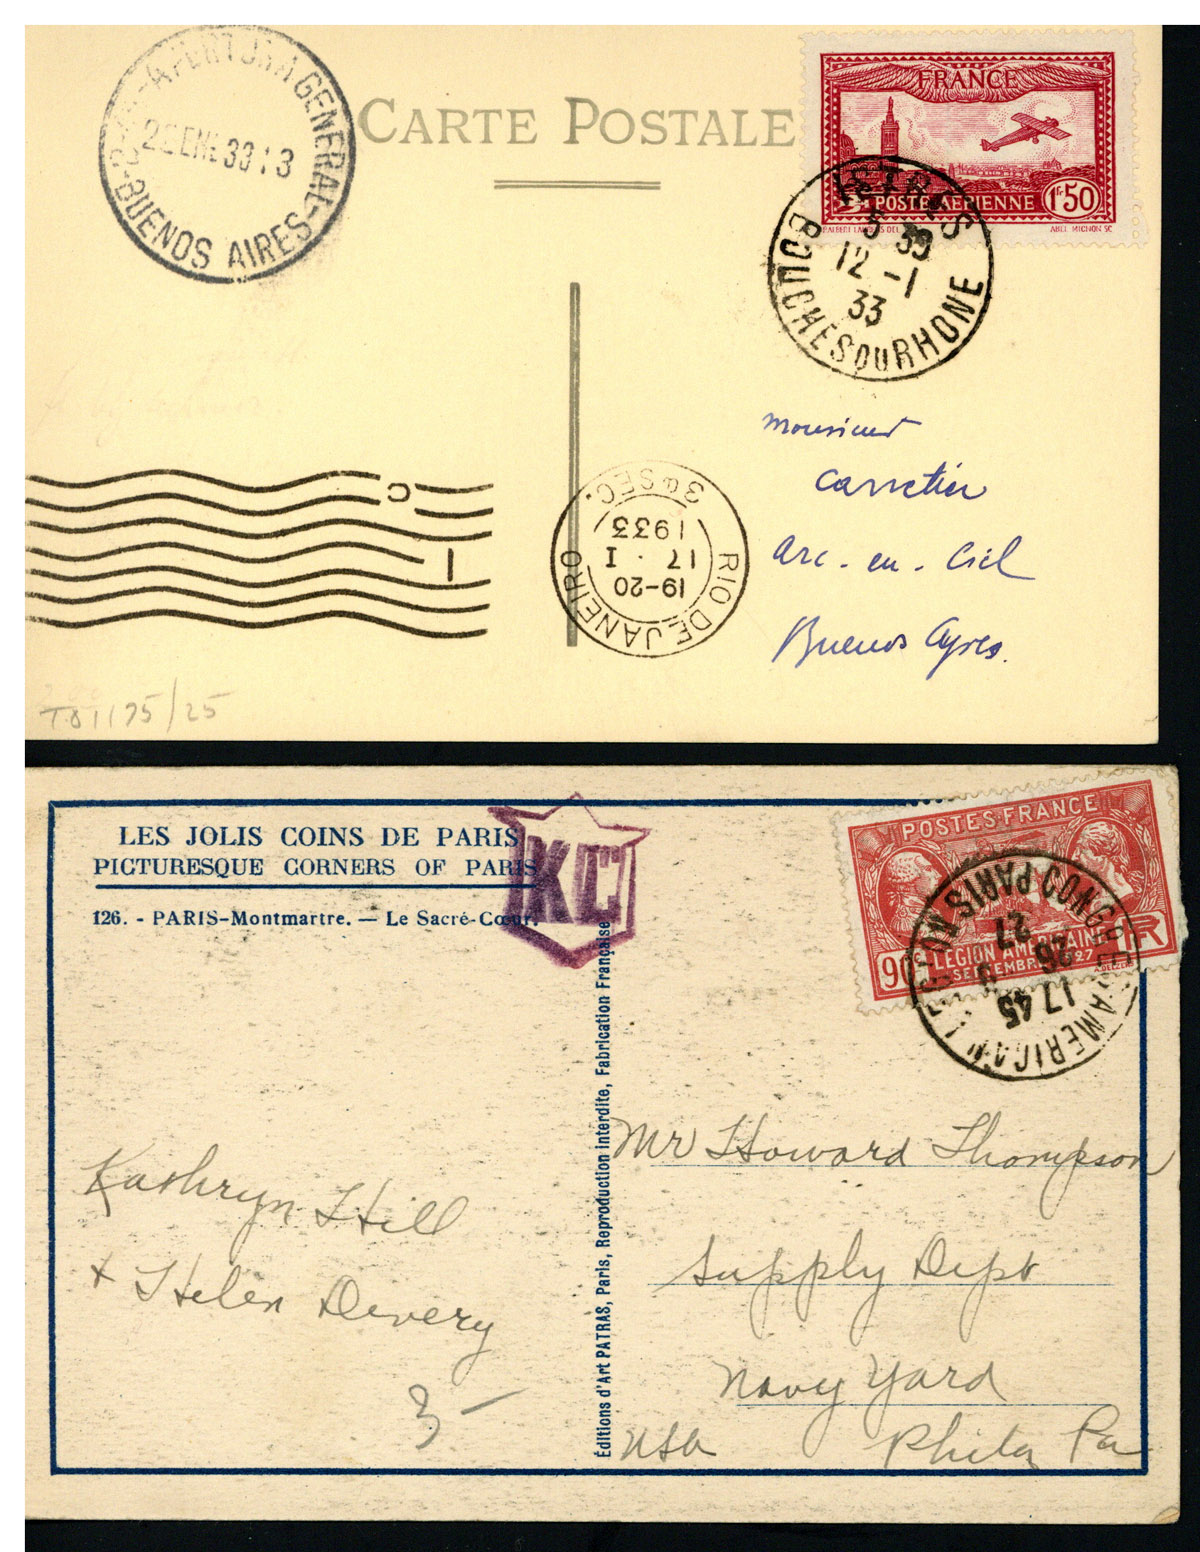 APERTURA GENERAL-
BUENOS AIRES-
ENE 33 13
CARTE POSTALE
FRANCE
POSTE AÉRIENNE
1F50
ABEL MIGNON SC
ISTRES
5 39
12 -1
33
BOUCHES DU RHONE
Monsieur
Carretier
Arc-en-Ciel
Buenos Ayres.
RIO DE JANEIRO
19-20
17 · I
1933
3ª SEC.
/25
LES JOLIS COINS DE PARIS
PICTURESQUE CORNERS OF PARIS
126. - PARIS-Montmartre. — Le Sacré-Cœur.
KC
POSTES·FRANCE
LEGION AMERICAINE
SEPTEMBRE 1927
90
17 45
26 9
27
PARIS
CONGRES AMERICAN
Editions d'Art PATRAS, Paris, Reproduction interdite, Fabrication Française
Kathryn Hill
+ Helen Devery
3 —
Mr Howard Thompson
Supply Dept
Navy Yard
USA Phila Pa